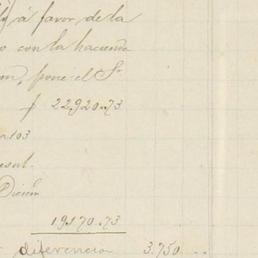 á favor, de la
o con la hacienda
pone el Sr
f 22,920.73
103
Dicien
19170.73
diferencia 3.750